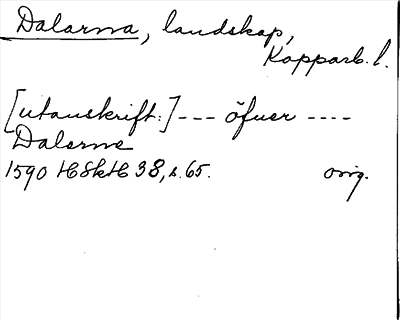 Dalarna, landskap,
Kopparb. l.
[utanskrift:] --- öfuer ----
Dalerne
1590 HSkH 38, s. 65. orig.